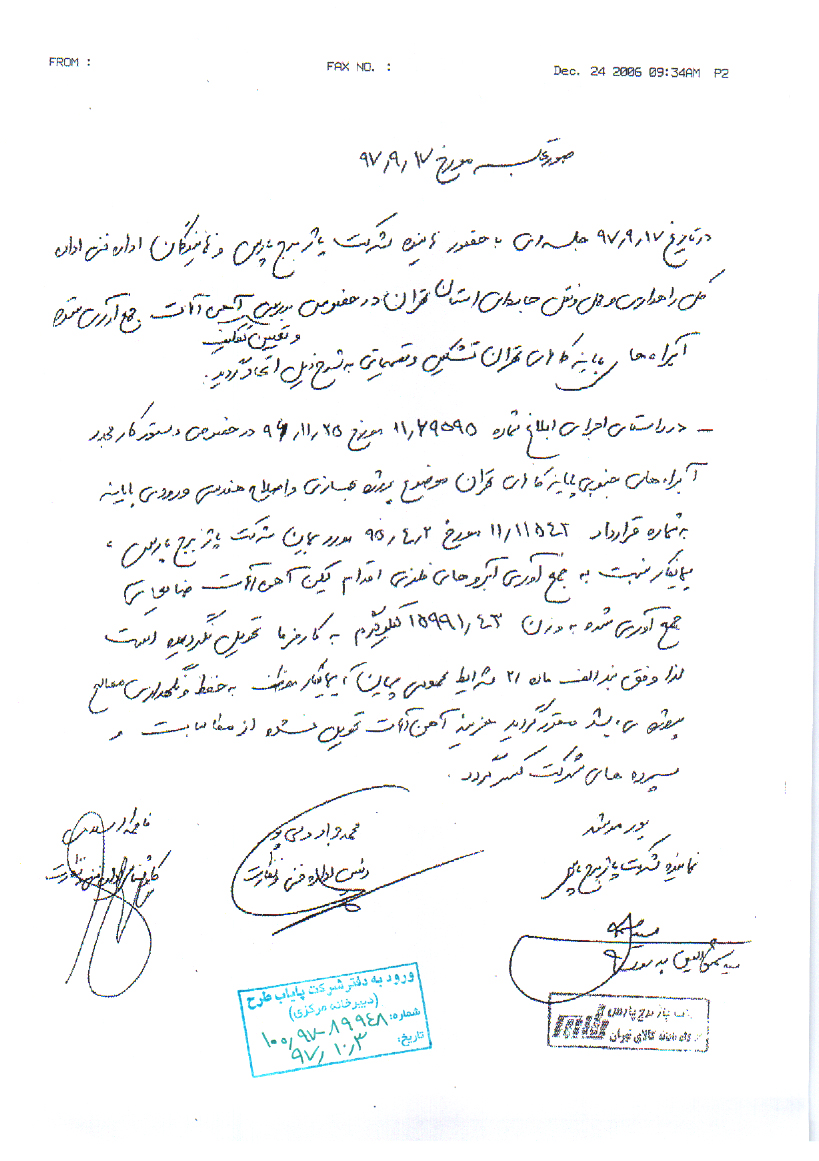 FROM :
FAX NO. :
Dec. 24 2006 09:34AM P2
صورتجلسه مورخ ۹۷,۹,۱۷
در تاریخ ۹۷,۹,۱۷ جلسه‌ای با حضور نماینده شرکت پاژ برج پارس و نمایندگان اداره فنی اداره
کل راهداری و حمل و نقل جاده‌ای استان تهران در خصوص بررسی آهن آلات جمع آوری شده
و تعیین تکلیف
آبراه‌های پایانه کالای تهران تشکیل و تصمیماتی به شرح ذیل اتخاذ گردید.
– در راستای اجرای ابلاغ شماره ۱۱,۲۹۵۹۵ مورخ ۹۶,۱۱,۲۵ در خصوص دستور کار جدید
آبراه‌های جنوبی پایانه کالای تهران موضوع پروژه بهسازی و اصلاح هندسی ورودی پایانه
به شماره قرارداد ۱۱,۱۱۵۴۲ مورخ ۹۵,۴,۲ مورد پیمان شرکت پاژ برج پارس ،
پیمانکار نسبت به جمع آوری آبروهای فلزی اقدام لیکن آهن آلات ضایعاتی
جمع آوری شده به وزن ۱۵۹۹۱,۴۳ کیلوگرم به کارفرما تحویل نگردیده است
لذا وفق بند الف ماده ۲۱ شرایط عمومی پیمان، پیمانکار موظف به حفظ و نگهداری مصالح
پروژه می باشد مقرر گردید هزینه آهن آلات تحویل نشده از مطالبات و
سپرده های شرکت کسر گردد .
پور مرشد
نماینده شرکت پاژ برج پارس
محمد جواد
رئیس اداره فنی و نظارت
فاطمه
کارشناس اداره فنی و نظارت
ورود به دفتر شرکت پایاب طرح
(دبیرخانه مرکزی)
شماره: ۱۰۰,۹۷-۸۹۹۴۸
تاریخ: ۹۷,۱۰,۳
پاژ برج پارس
کالای تهران